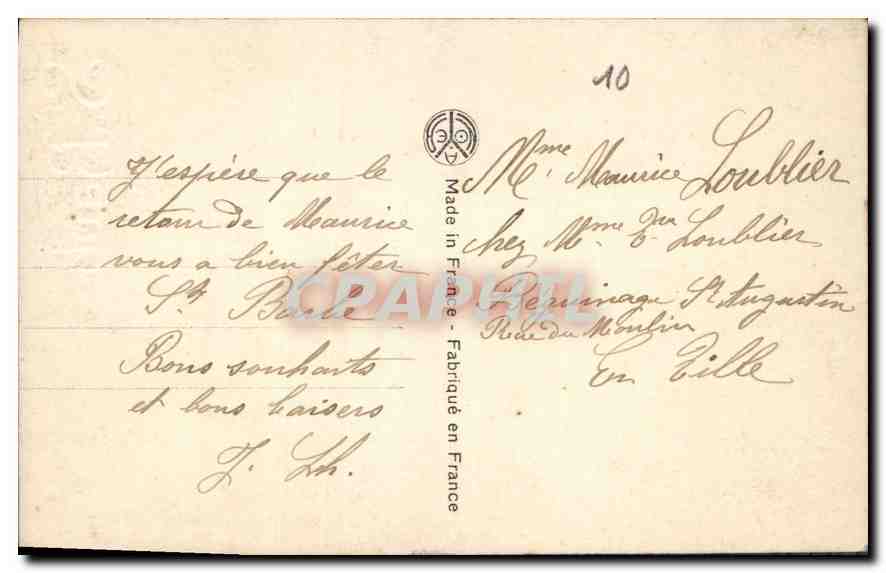 10
J'espère que le
retour de Maurice
vous a bien fêter
Ste Barbe
Bons souhaits
et bons baisers
J. Lh.
Made in France - Fabriqué en France
Mme Maurice Loublier
chez Mme Loublier
St Augustin
Rue du Moulin
En Ville
CPAPHIL